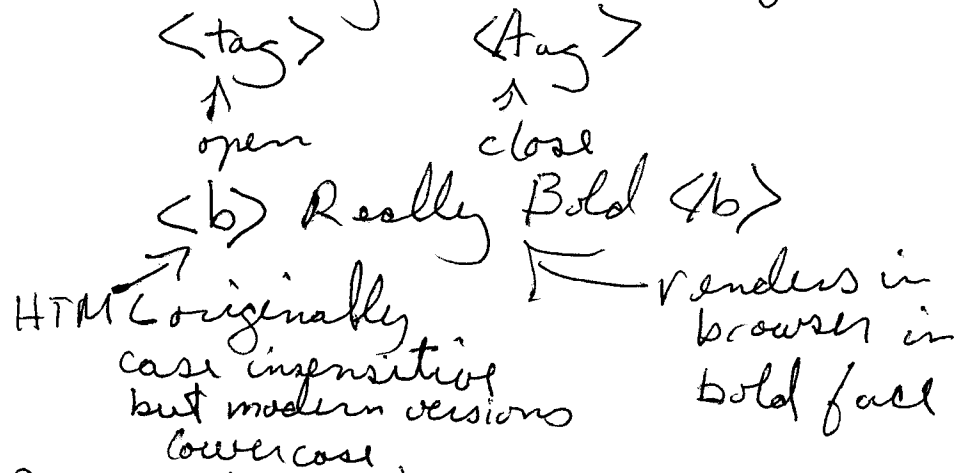 <tag> </tag>
open close
<b> Really Bold </b>
HTML originally
case insensitive
but modern versions
lowercase
renders in
browser in
bold face